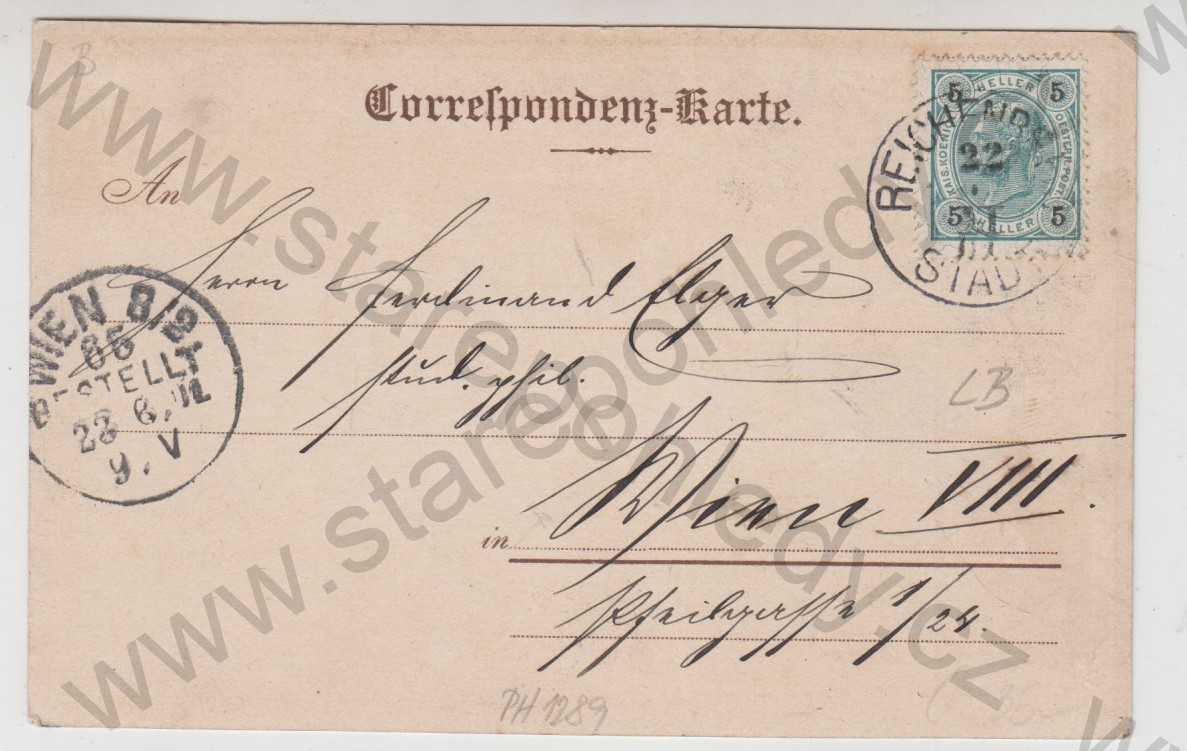 B
Correspondenz-Karte.
An
5 HELLER 5
KAIS. KOENIGL. OESTERR. POST
5 HELLER 5
REICHENB
22
STADT
Herrn Ferdinand Elger
WIEN 8/2
66
BESTELLT
9. V
stud. phil.
LB
in Wien VIII.
Pfeilgasse 1/24.
PH 1289
www.starepohledy.cz
www.starepohledy.cz